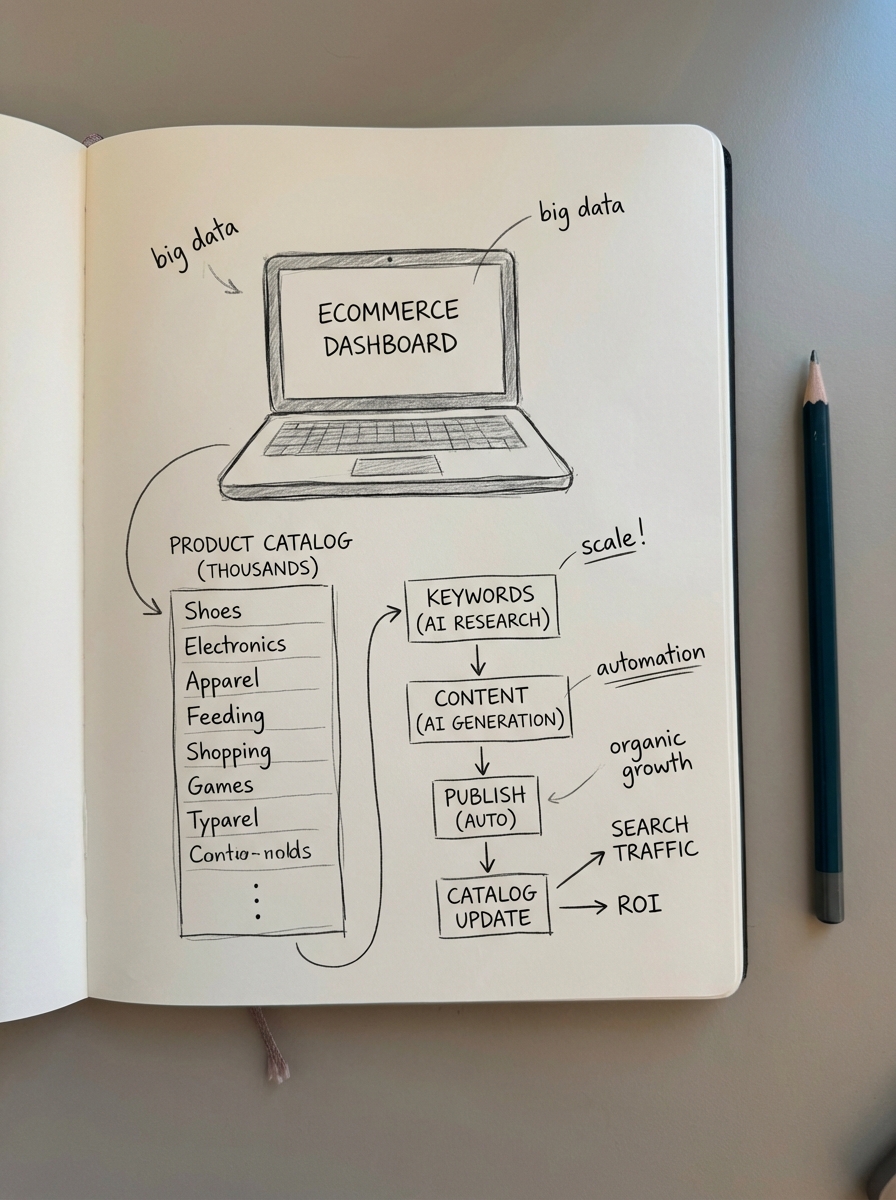 big data
big data
ECOMMERCE
DASHBOARD
PRODUCT CATALOG
(THOUSANDS)
Shoes
Electronics
Apparel
Feeding
Shopping
Games
Typarel
scale!
KEYWORDS
(AI RESEARCH)
automation
CONTENT
(AI GENERATION)
organic
growth
PUBLISH
(AUTO)
CATALOG
UPDATE
SEARCH
TRAFFIC
ROI